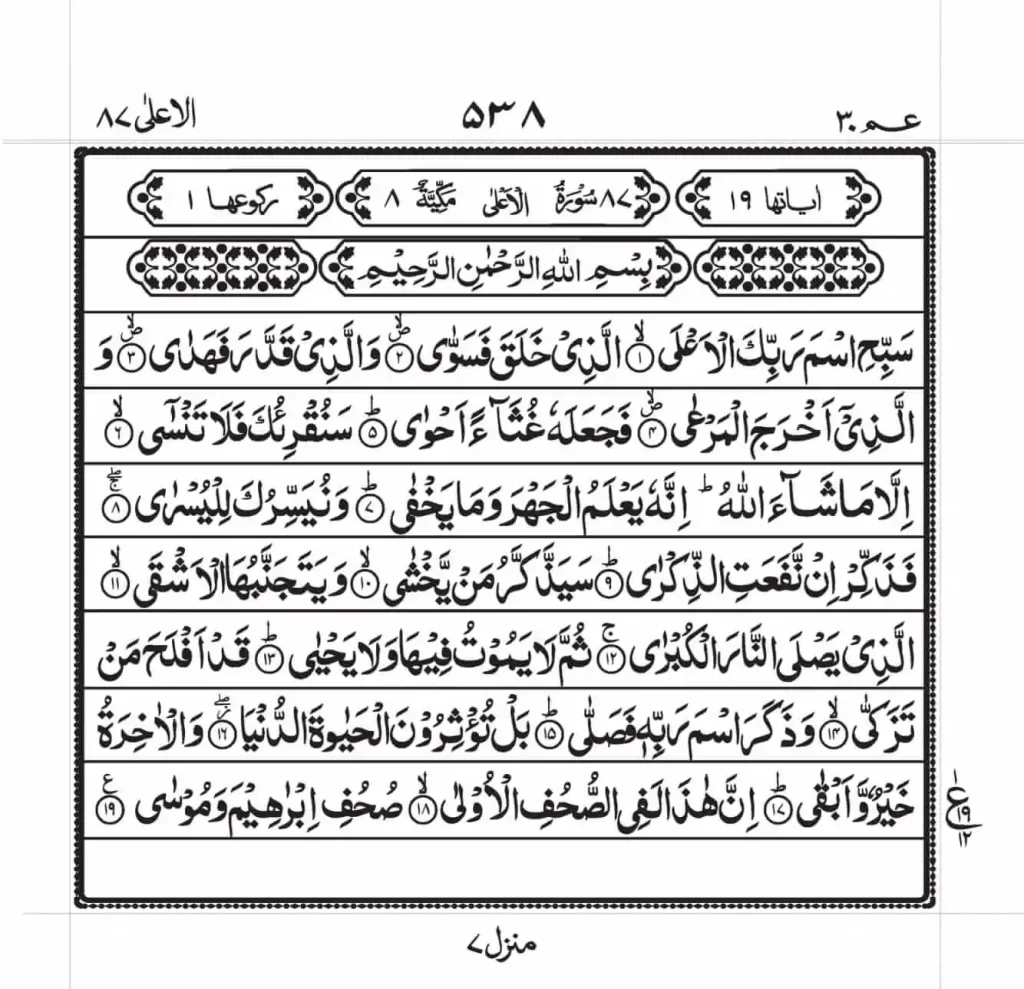 عم ٣٠ ٥٣٨ الاعلىٰ ٨٧
اياتها ١٩ ٨٧ سُوْرَةُ الْاَعْلٰى مَكِّيَّةٌ ٨ ركوعها ١
بِسْمِ اللّٰهِ الرَّحْمٰنِ الرَّحِيْمِ
سَبِّحِ اسْمَ رَبِّكَ الْاَعْلَى ۙ﴿١﴾ الَّذِىْ خَلَقَ فَسَوّٰى ۪ۙ﴿٢﴾ وَالَّذِىْ قَدَّرَ فَهَدٰى ۪ۙ﴿٣﴾ وَ
الَّذِىْۤ اَخْرَجَ الْمَرْعٰى ۪ۙ﴿٤﴾ فَجَعَلَهٗ غُثَآءً اَحْوٰى ؕ﴿٥﴾ سَنُقْرِئُكَ فَلَا تَنْسٰٓى ۙ﴿٦﴾
اِلَّا مَا شَآءَ اللّٰهُ ؕ اِنَّهٗ يَعْلَمُ الْجَهْرَ وَمَا يَخْفٰى ؕ﴿٧﴾ وَنُيَسِّرُكَ لِلْيُسْرٰى ۚۖ﴿٨﴾
فَذَكِّرْ اِنْ نَّفَعَتِ الذِّكْرٰى ؕ﴿٩﴾ سَيَذَّكَّرُ مَنْ يَّخْشٰى ۙ﴿١٠﴾ وَيَتَجَنَّبُهَا الْاَشْقَى ۙ﴿١١﴾
الَّذِىْ يَصْلَى النَّارَ الْكُبْرٰى ۚ﴿١٢﴾ ثُمَّ لَا يَمُوْتُ فِيْهَا وَلَا يَحْيٰى ؕ﴿١٣﴾ قَدْ اَفْلَحَ مَنْ
تَزَكّٰى ۙ﴿١٤﴾ وَذَكَرَ اسْمَ رَبِّهٖ فَصَلّٰى ؕ﴿١٥﴾ بَلْ تُؤْثِرُوْنَ الْحَيٰوةَ الدُّنْيَا ۖ﴿١٦﴾ وَالْاٰخِرَةُ
خَيْرٌ وَّاَبْقٰى ؕ﴿١٧﴾ اِنَّ هٰذَا لَفِى الصُّحُفِ الْاُوْلٰى ۙ﴿١٨﴾ صُحُفِ اِبْرٰهِيْمَ وَمُوْسٰى ﴿١٩﴾ ع
١
ع ١٩
١٢
منزل ٧